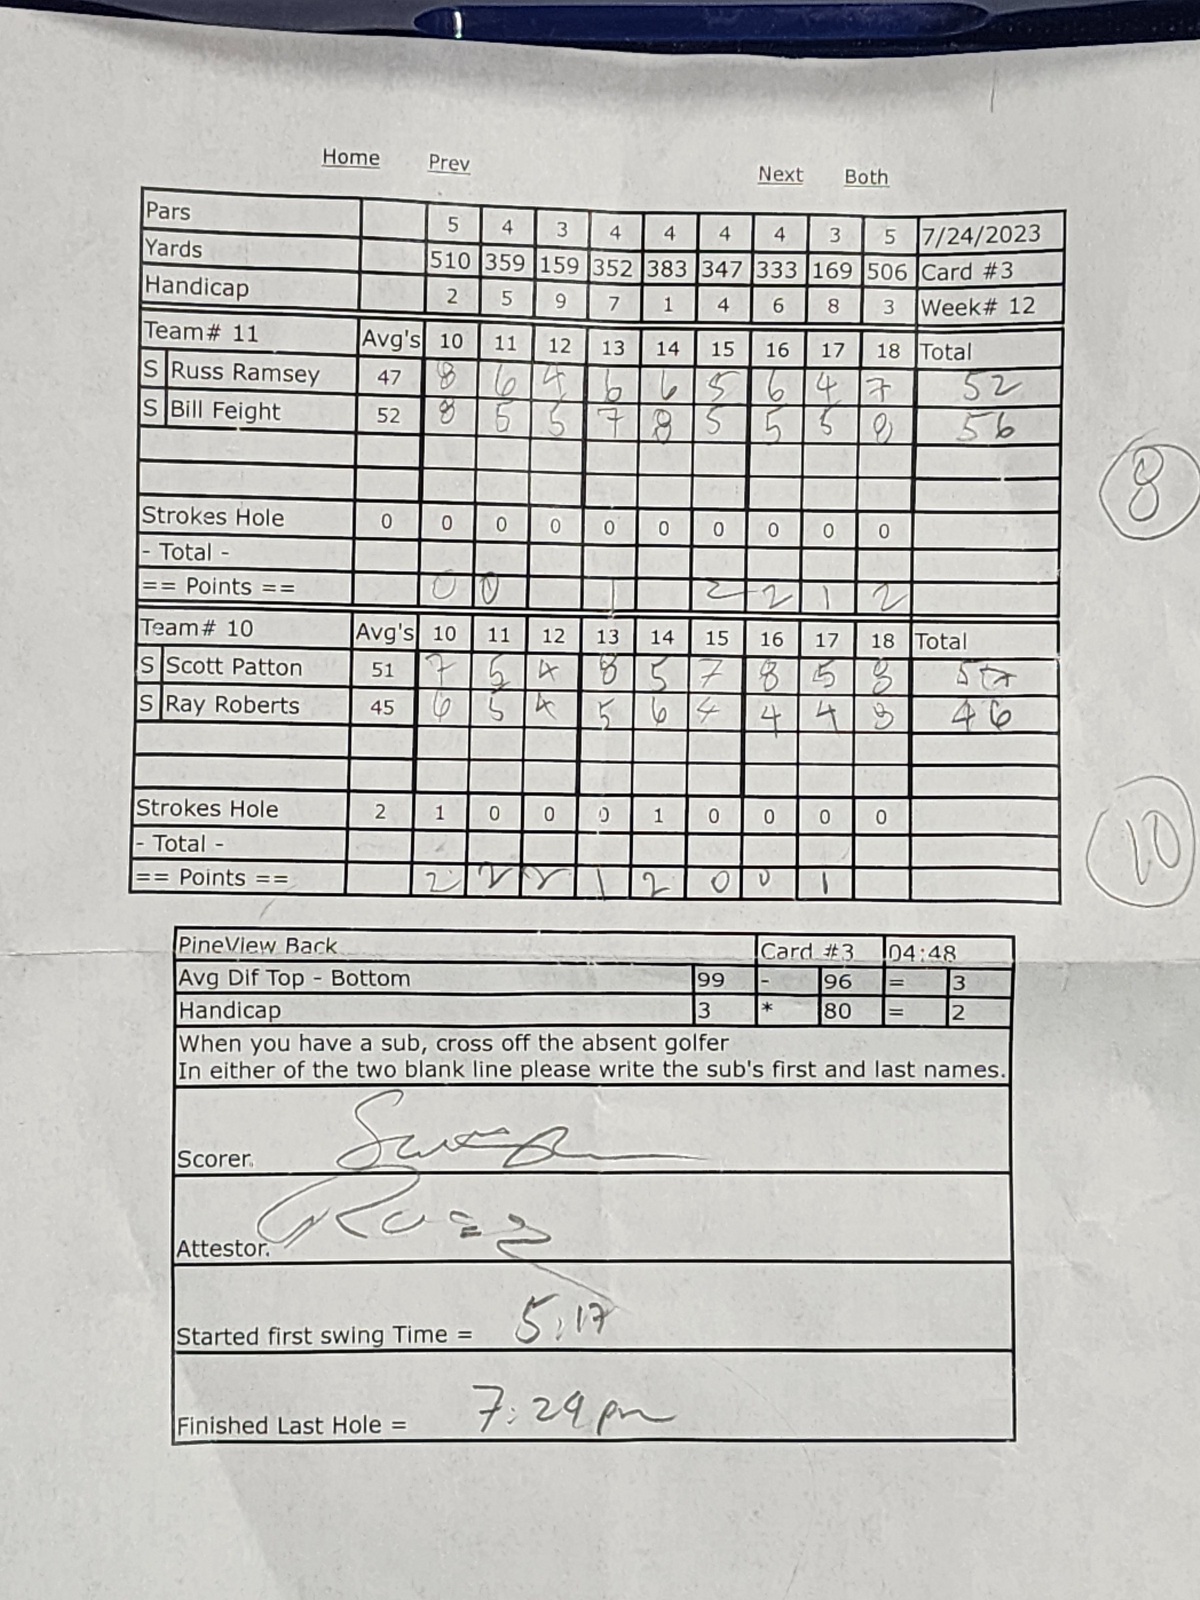 Home Prev Next Both
Pars 5 4 3 4 4 4 4 3 5 7/24/2023
Yards 510 359 159 352 383 347 333 169 506 Card #3
Handicap 2 5 9 7 1 4 6 8 3 Week# 12
Team# 11 Avg's 10 11 12 13 14 15 16 17 18 Total
S Russ Ramsey 47 8 6 4 6 6 5 6 4 7 52
S Bill Feight 52 8 5 5 7 8 5 5 5 8 56
8
Strokes Hole 0 0 0 0 0 0 0 0 0 0
- Total -
== Points == 0 0 1 2 2 1 2
Team# 10 Avg's 10 11 12 13 14 15 16 17 18 Total
S Scott Patton 51 7 5 4 8 5 7 8 5 8 57
S Ray Roberts 45 6 5 4 5 6 4 4 4 8 46
Strokes Hole 2 1 0 0 0 1 0 0 0 0
10
- Total -
== Points == 2 2 2 1 2 0 0 1
PineView Back Card #3 04:48
Avg Dif Top - Bottom 99 - 96 = 3
Handicap 3 * 80 = 2
When you have a sub, cross off the absent golfer
In either of the two blank line please write the sub's first and last names.
Scorer.
Attestor.
Started first swing Time = 5:17
Finished Last Hole = 7:29 pm